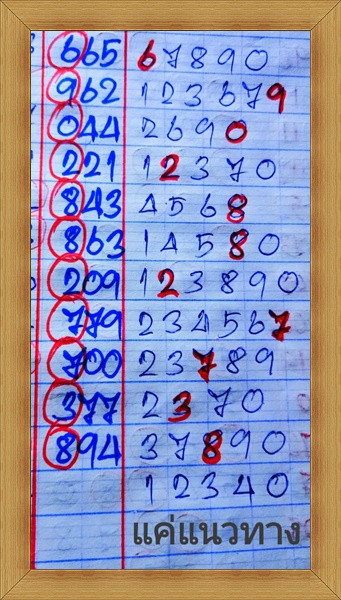 665 67890
962 123679
044 2690
221 12370
843 4568
863 14580
209 123890
779 234567
700 23789
377 2370
894 37890
12340
แค่แนวทาง